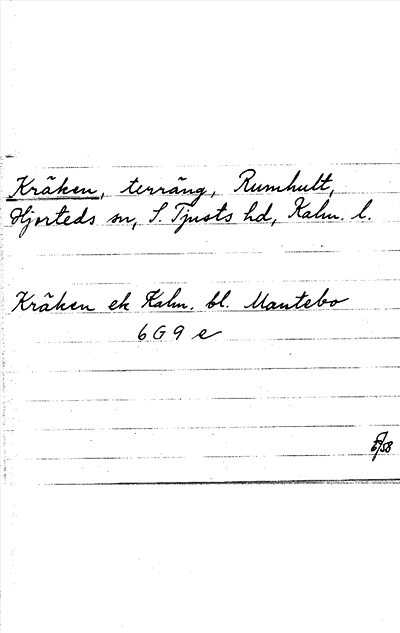 Kråken, terräng, Rumhult,
Hjorteds sn, S. Tjusts hd, Kalm. l.
Kråken ek Kalm. bl. Mantebo
6 G 9 e